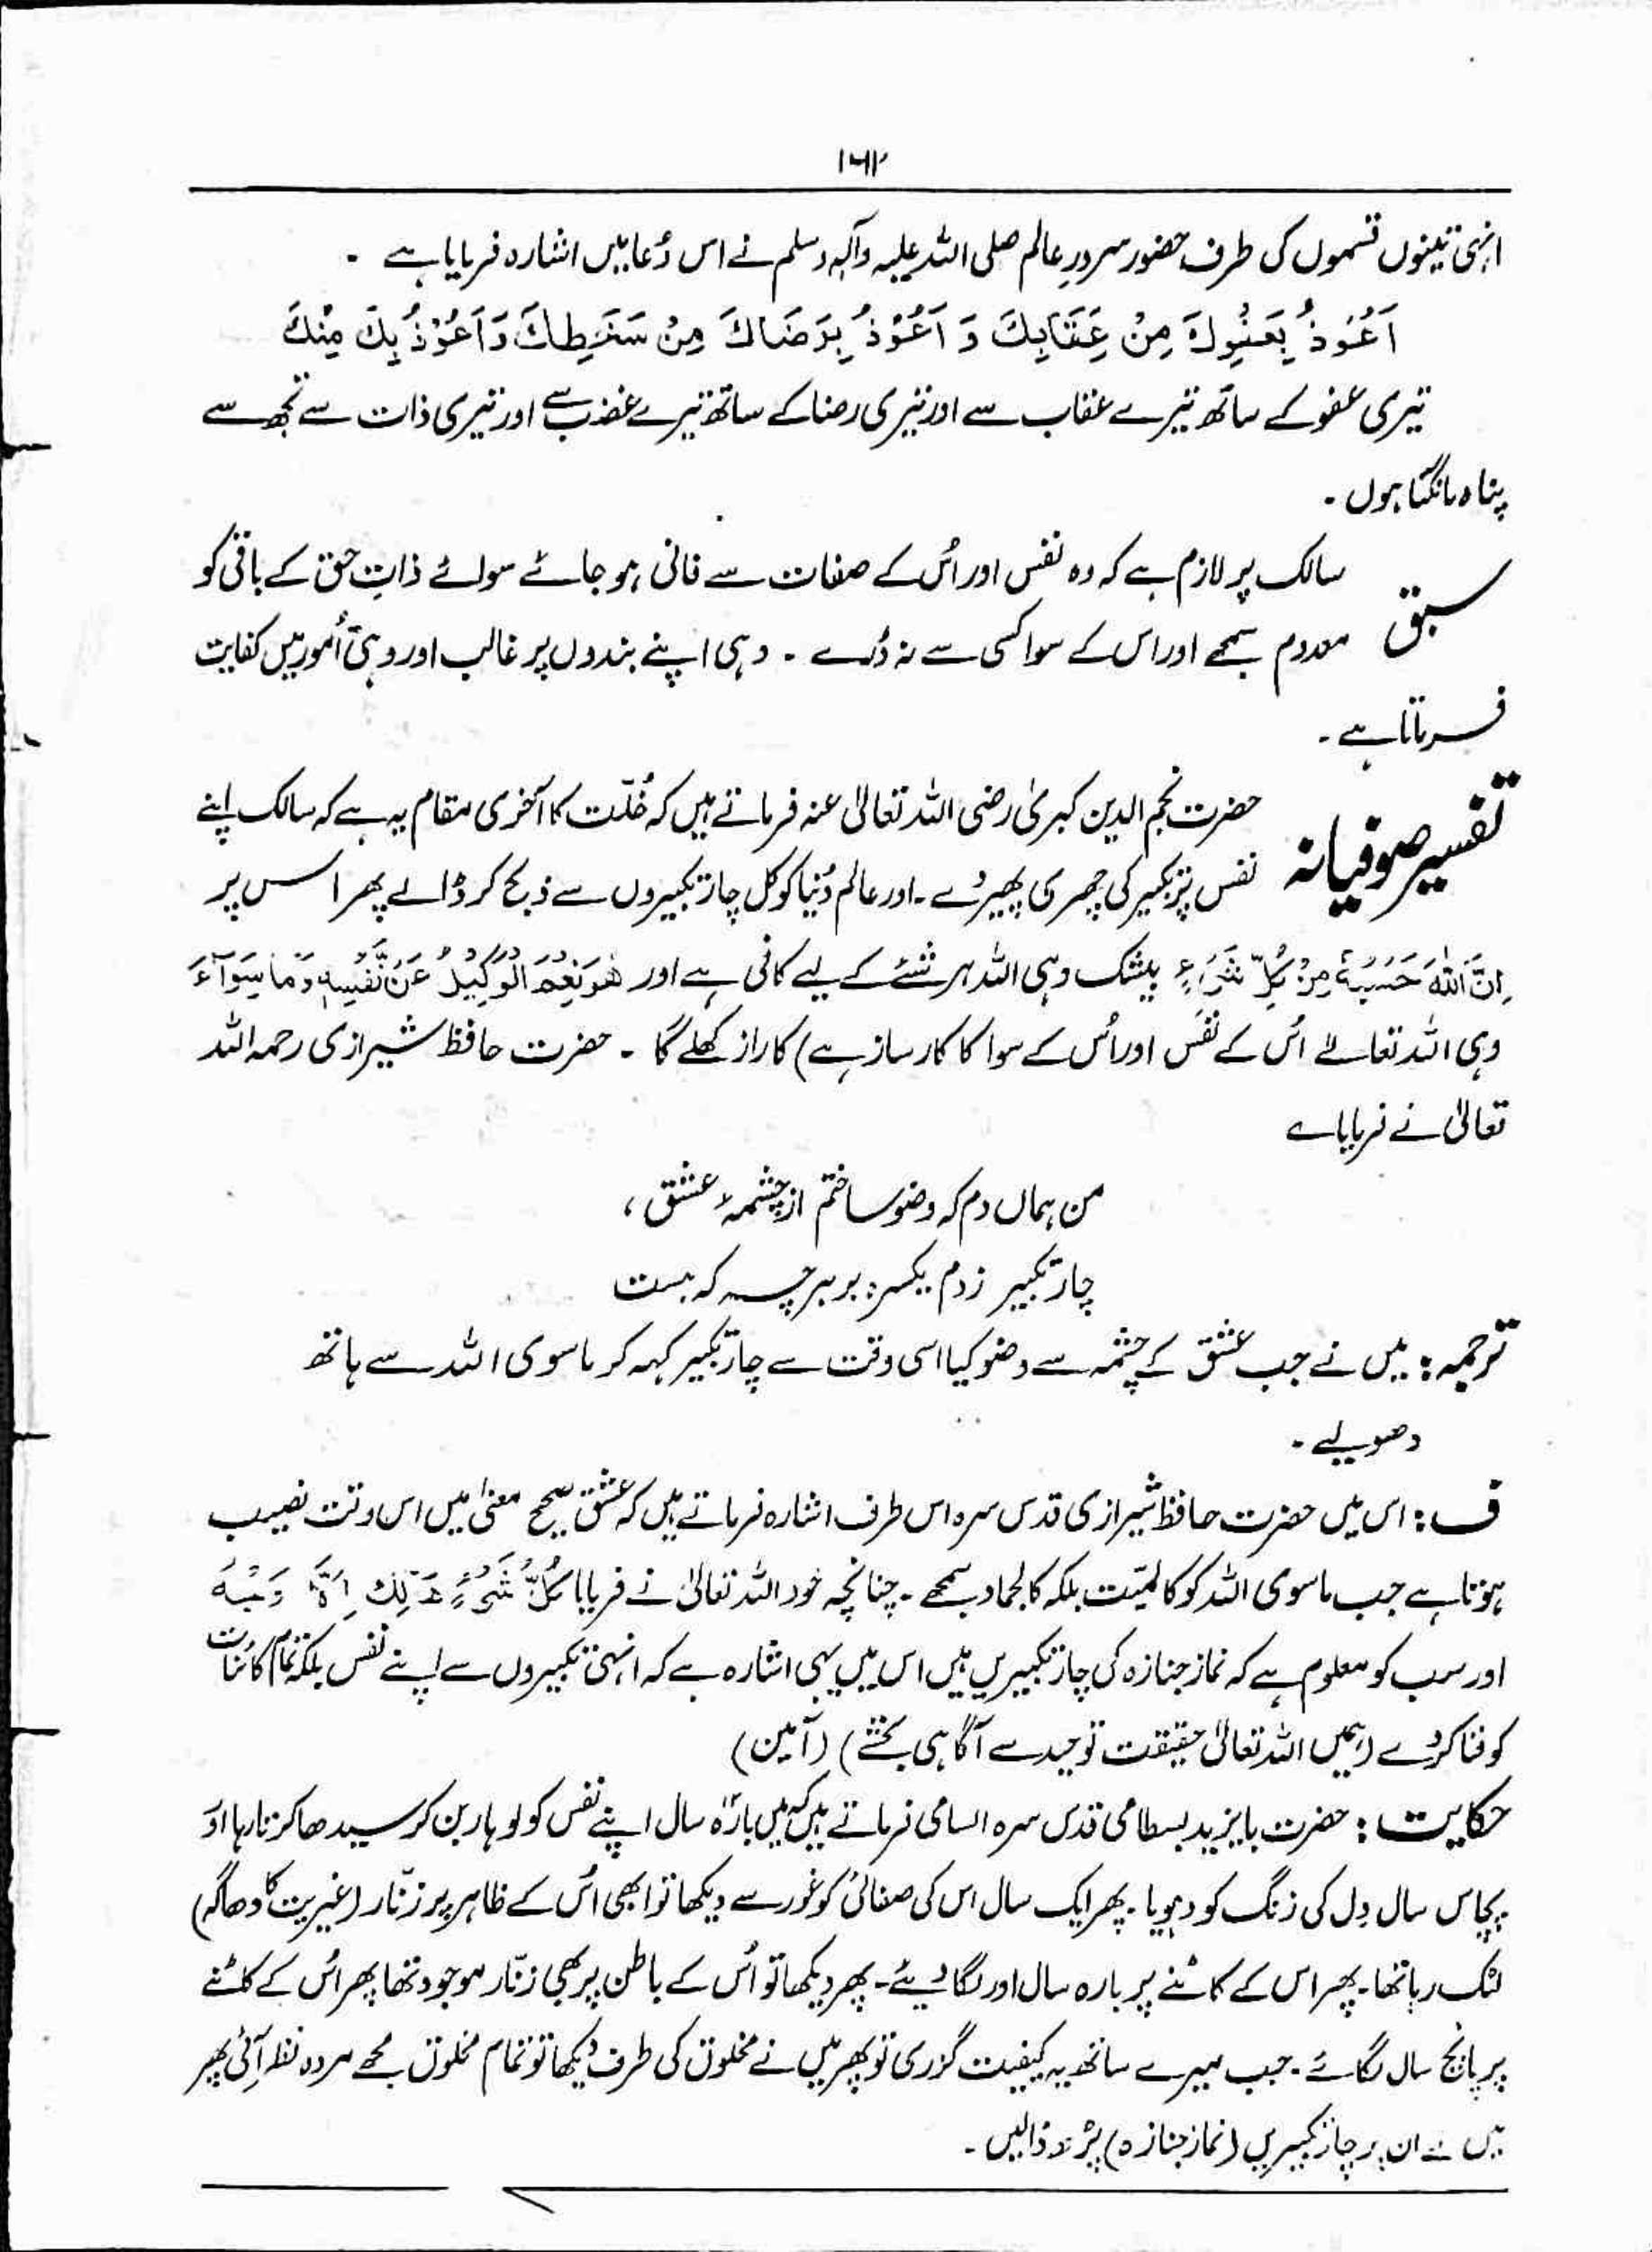 ۱۶۲
انہی تینوں قسموں کی طرف حضور سرورِ عالم صلی اللہ علیہ وآلہ وسلم نے اس دُعا میں اشارہ فرمایا ہے ۔
اَعُوْذُ بِعَفْوِكَ مِنْ عِقَابِكَ وَ اَعُوْذُ بِرِضَاكَ مِنْ سَخَطِكَ وَاَعُوْذُ بِكَ مِنْكَ
تیری عفو کے ساتھ تیرے عقاب سے اور تیری رضا کے ساتھ تیرے غضب سے اور تیری ذات سے تجھ سے
پناہ مانگتا ہوں ۔
سبق سالک پر لازم ہے کہ وہ نفس اور اُس کے صفات سے فانی ہو جائے سوائے ذاتِ حق کے باقی کو
معدوم سمجھے اور اس کے سوا کسی سے نہ ڈرے ۔ وہی اپنے بندوں پر غالب اور وہی اُمور میں کفایت
فرماتا ہے ۔
تفسیر صوفیانہ حضرت نجم الدین کبریٰ رضی اللہ تعالیٰ عنہ فرماتے ہیں کہ خُلّت کا آخری مقام یہ ہے کہ سالک اپنے
نفس پر تکبیر کی چھری پھیر دے ۔ اور عالمِ دُنیا کو کل چار تکبیروں سے ذبح کر ڈالے پھر اس پر
اِنَّ اللّٰهَ حَسْبُهٗ مِنْ كُلِّ شَیْءٍ بیشک وہی اللہ ہر شئے کے لیے کافی ہے اور هُوَ نِعْمَ الْوَكِيْلُ عَنْ نَّفْسِهٖ وَمَا سِوَآءَ
وہی اللہ تعالےٰ اُس کے نفس اور اُس کے سوا کا کارساز ہے) کا راز کھلے گا ۔ حضرت حافظ شیرازی رحمہ اللہ
تعالیٰ نے فرمایا ے
من ہماں دم کہ وضو ساختم از چشمۂ عشق ،
چار تکبیر زدم یکسرہ بر ہرچہ کہ ہست
ترجمہ : میں نے جب عشق کے چشمہ سے وضو کیا اسی وقت سے چار تکبیر کہہ کر ماسوی اللہ سے ہاتھ
دھو لیے ۔
ف : اس میں حضرت حافظ شیرازی قدس سرہ اس طرف اشارہ فرماتے ہیں کہ عشق صحیح معنیٰ میں اس وقت نصیب
ہوتا ہے جب ماسوی اللہ کو کالمیّت بلکہ کالجماد سمجھے ۔ چنانچہ خود اللہ تعالیٰ نے فرمایا كُلُّ شَیْءٍ هَالِكٌ اِلَّا وَجْهَهٗ
اور سب کو معلوم ہے کہ نماز جنازہ کی چار تکبیریں ہیں اس میں یہی اشارہ ہے کہ انہی تکبیروں سے اپنے نفس بلکہ تمام کائنات
کو فنا کر دے (ہمیں اللہ تعالیٰ حقیقت توحید سے آگاہی بخشے) (آمین)
حکایت : حضرت بایزید بسطامی قدس سرہ السامی فرماتے ہیں کہ میں بارہ سال اپنے نفس کو لوہار بن کر سیدھا کرتا رہا اور
پچاس سال دِل کی زنگ کو دھویا ۔ پھر ایک سال اس کی صفائی کو غور سے دیکھا تو ابھی اُس کے ظاہر پر زنّار (غیریت کا دھاگہ)
لٹک رہا تھا ۔ پھر اس کے کاٹنے پر بارہ سال اور لگا دیئے ۔ پھر دیکھا تو اُس کے باطن پر بھی زنّار موجود تھا پھر اُس کے کاٹنے
پر پانچ سال لگائے ۔ جب میرے ساتھ یہ کیفیت گزری تو پھر میں نے مخلوق کی طرف دیکھا تو تمام مخلوق مجھے مردہ نظر آئی پھر
میں نے ان پر چار تکبیریں (نماز جنازہ) پڑھ ڈالیں ۔